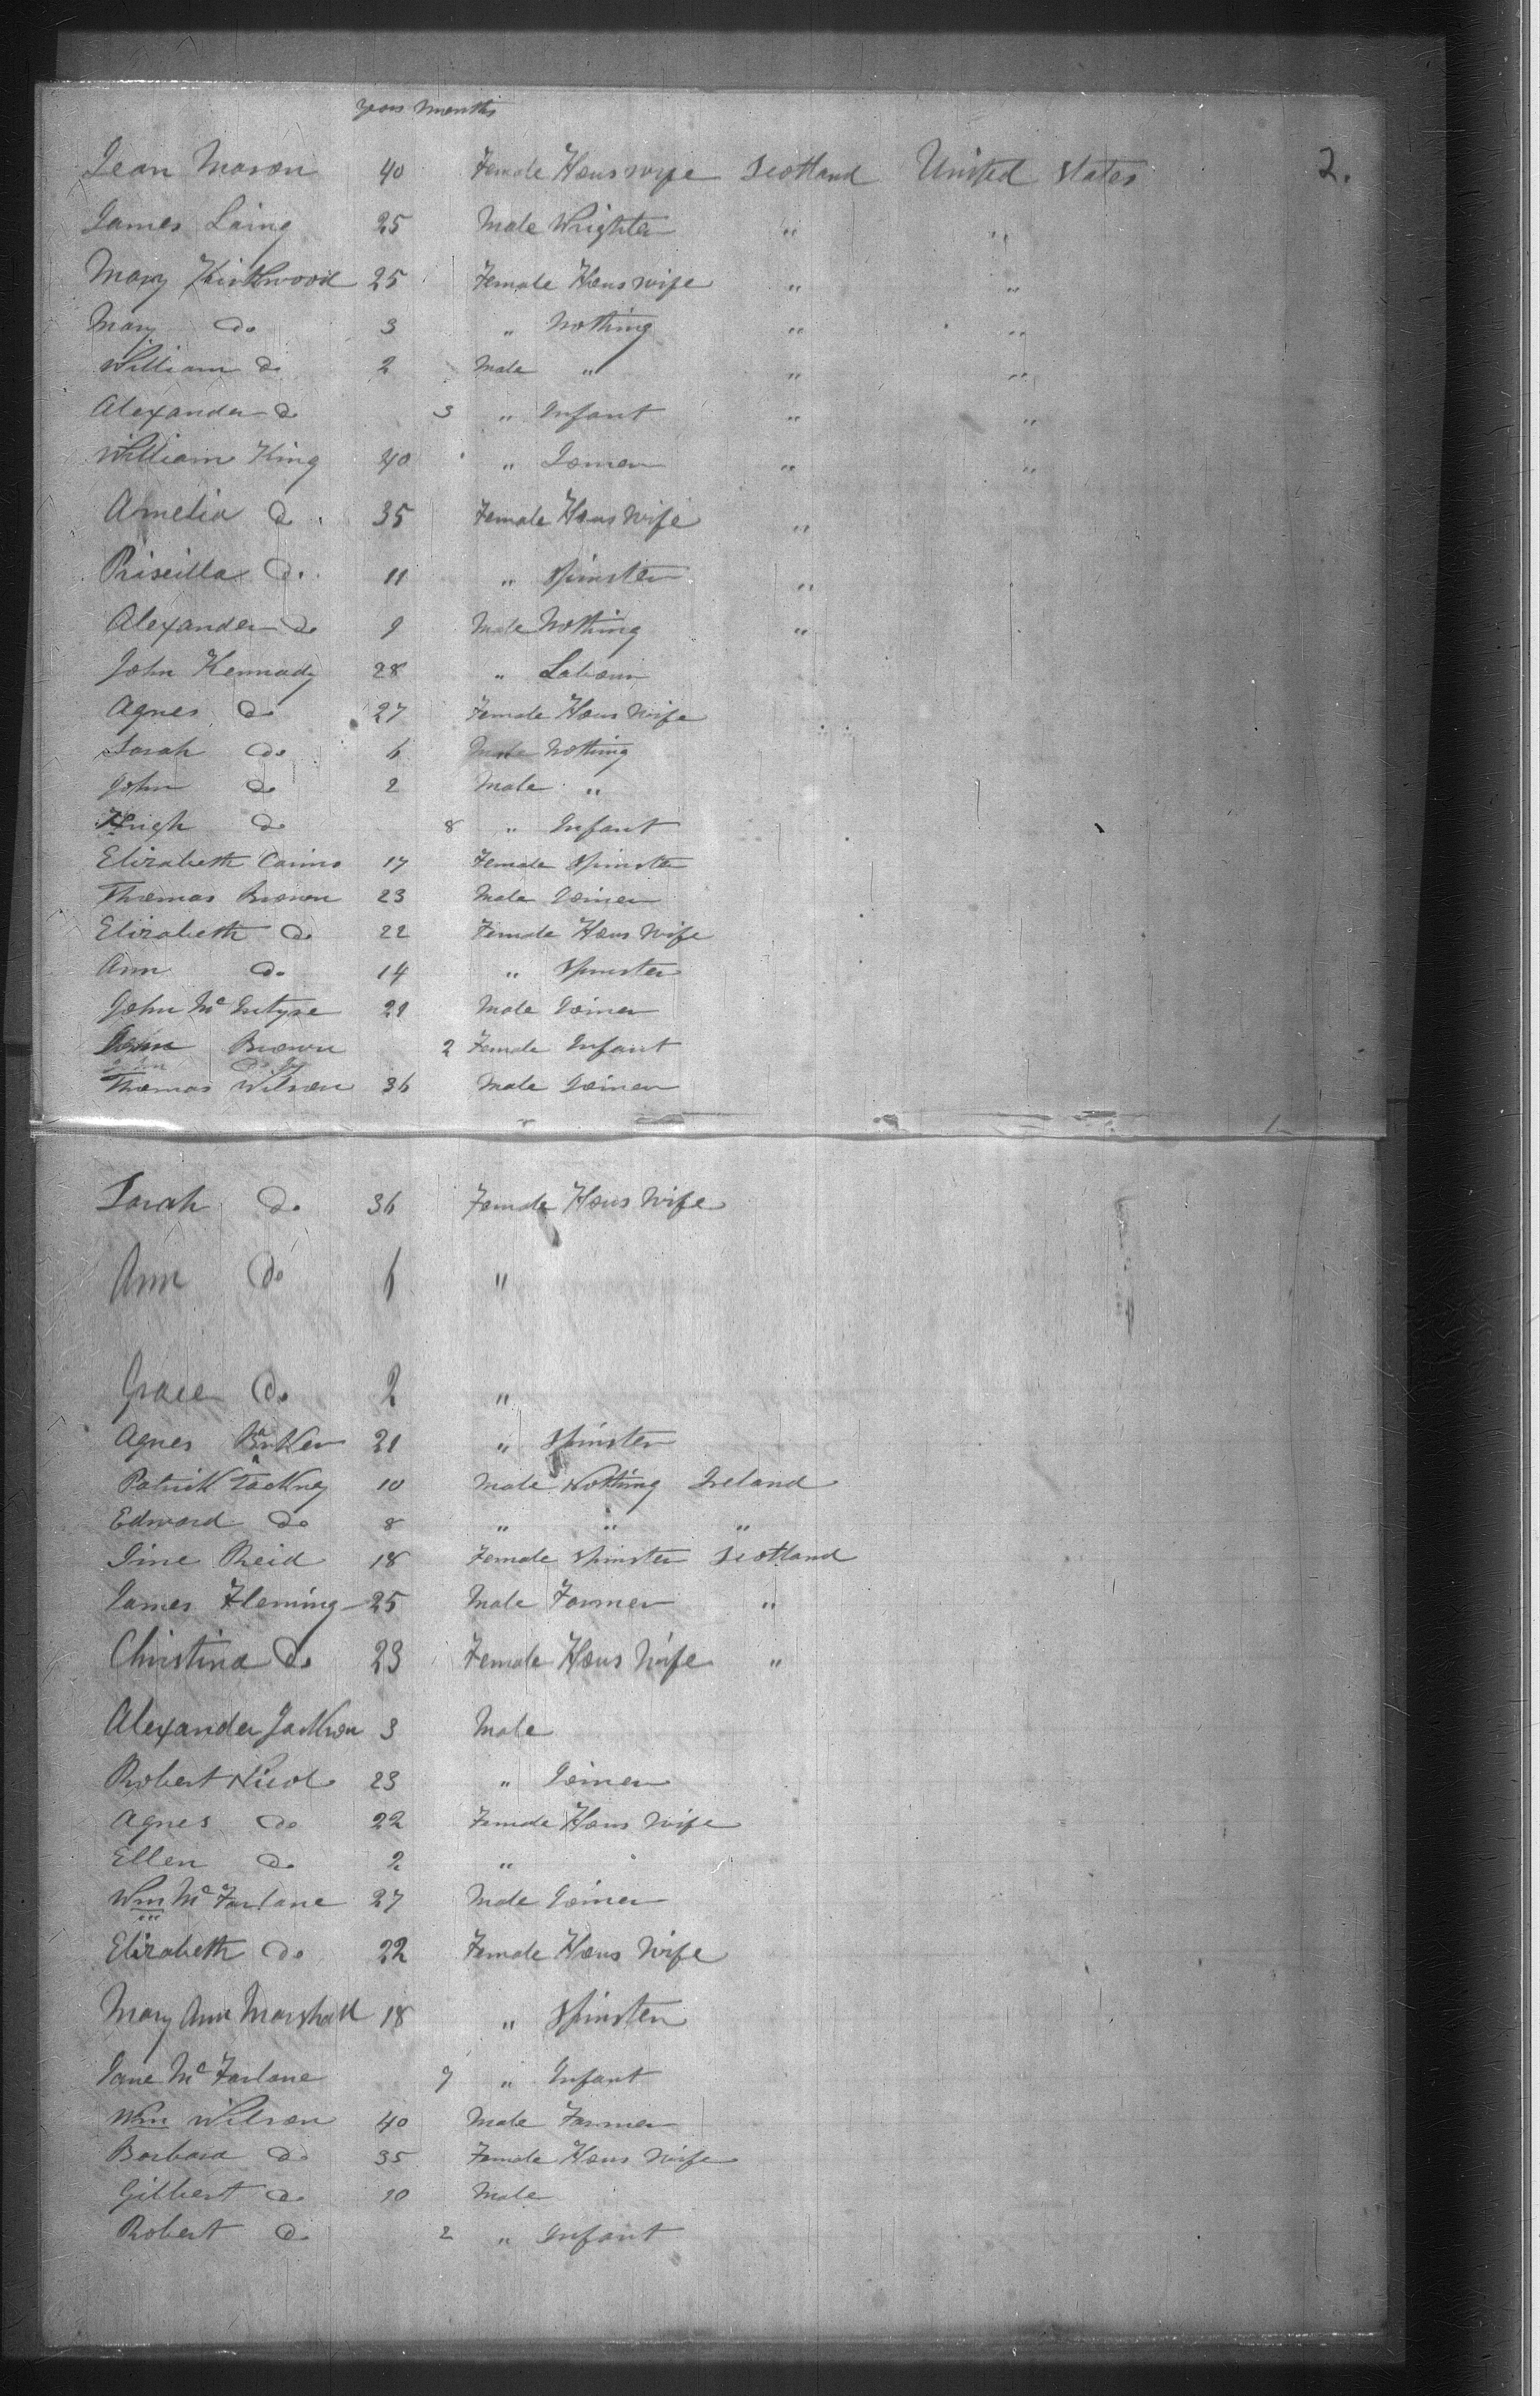 years months
Jean Mason 40 Female Hous wife Scotland United States 2.
James Laing 25 Male Wrighter " "
Mary Kirkwood 25 Female Hous wife " "
Mary do 3 " Nothing " "
William do 2 Male " " "
Alexander do 3 " Infant " "
William King 40 " Joiner " "
Amelia do 35 Female Hous Wife "
Priscilla do 11 " Spinster "
Alexander do 9 Male Nothing "
John Kennady 28 " Labour
Agnes do 27 Female Hous Wife
Sarah do 6 Male Nothing
John do 2 Male "
Hugh do 8 " Infant
Elizabeth Cairns 17 Female Spinster
Thomas Brown 23 Male Joiner
Elizabeth do 22 Female Hous Wife
Ann do 14 " Spinster
John Mc Intyre 21 Male Joiner
Brown 2 Female Infant
Thomas Wilson 36 Male Joiner
Sarah do 36 Female Hous Wife
Ann do 6 "
Grace do 2 "
Agnes 21 " Spinster
Patrick Tackney 10 Male Nothing Ireland
Edward do 8 " " "
Jine Reid 18 Female Spinster Scotland
James Fleming 25 Male Farmer "
Christina do 23 Female Hous Wife "
Alexander Jackson 3 Male
Robert Nicol 23 " Joiner
Agnes do 22 Female Hous Wife
Ellen do 2 "
Wm Mc Farlane 27 Male Joiner
Elizabeth do 22 Female Hous Wife
Mary Ann Marshall 18 " Spinster
Jane Mc Farlane 7 " Infant
Wm Wilson 40 Male Farmer
Barbara do 35 Female Hous Wife
Gilbert do 10 Male
Robert do 2 " Infant